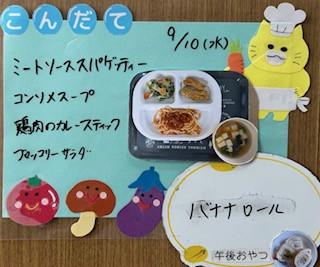 こんだて
9/10(水)
ミートソーススパゲッティー
コンソメスープ
鶏肉のカレースティック
ブロッコリーサラダ
バナナロール
午後おやつ